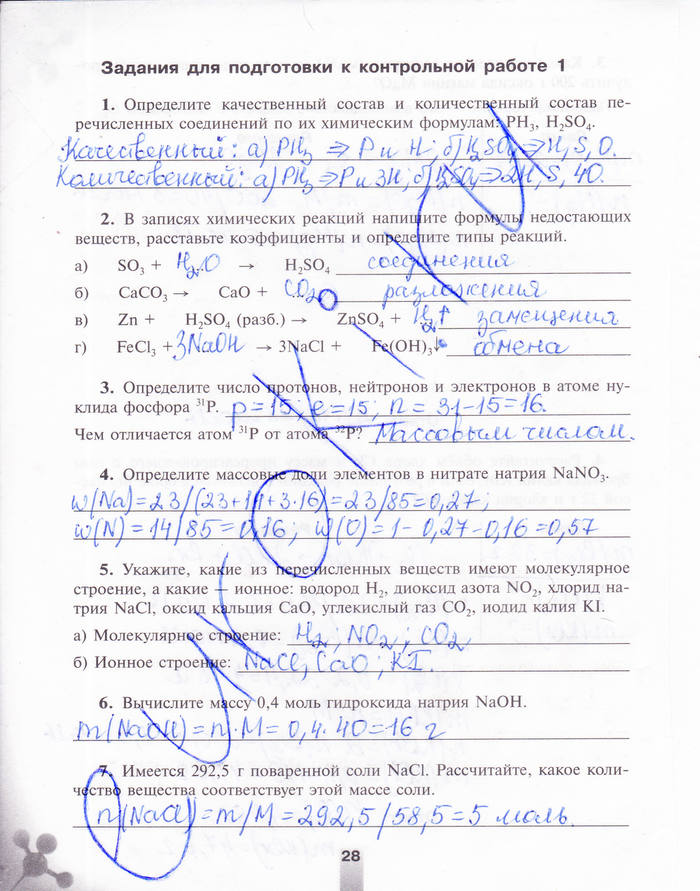 Задания для подготовки к контрольной работе 1
1. Определите качественный состав и количественный состав пе-
речисленных соединений по их химическим формулам: PH₃, H₂SO₄.
Качественный: а) PH₃ ⇒ P и H; б) H₂SO₄ ⇒ H, S, O.
Количественный: а) PH₃ ⇒ P и 3H; б) H₂SO₄ ⇒ 2H, S, 4O.
2. В записях химических реакций напишите формулы недостающих
веществ, расставьте коэффициенты и определите типы реакций.
а) SO₃ + H₂O → H₂SO₄ соединения
б) CaCO₃ → CaO + CO₂ разложения
в) Zn + H₂SO₄ (разб.) → ZnSO₄ + H₂↑ замещения
г) FeCl₃ + 3NaOH → 3NaCl + Fe(OH)₃↓ обмена
3. Определите число протонов, нейтронов и электронов в атоме ну-
клида фосфора ³¹P. p = 15; e = 15; n = 31-15=16.
Чем отличается атом ³¹P от атома ³²P? Массовым числом.
4. Определите массовые доли элементов в нитрате натрия NaNO₃.
w(Na)=23/(23+14+3·16)=23/85=0,27;
w(N)=14/85=0,16; w(O)=1-0,27-0,16=0,57
5. Укажите, какие из перечисленных веществ имеют молекулярное
строение, а какие — ионное: водород H₂, диоксид азота NO₂, хлорид на-
трия NaCl, оксид кальция CaO, углекислый газ CO₂, иодид калия KI.
а) Молекулярное строение: H₂; NO₂; CO₂
б) Ионное строение: NaCl, CaO; KI.
6. Вычислите массу 0,4 моль гидроксида натрия NaOH.
m(NaOH)=n·M=0,4·40=16 г
7. Имеется 292,5 г поваренной соли NaCl. Рассчитайте, какое коли-
чество вещества соответствует этой массе соли.
n(NaCl)=m/M=292,5/58,5=5 моль.
28